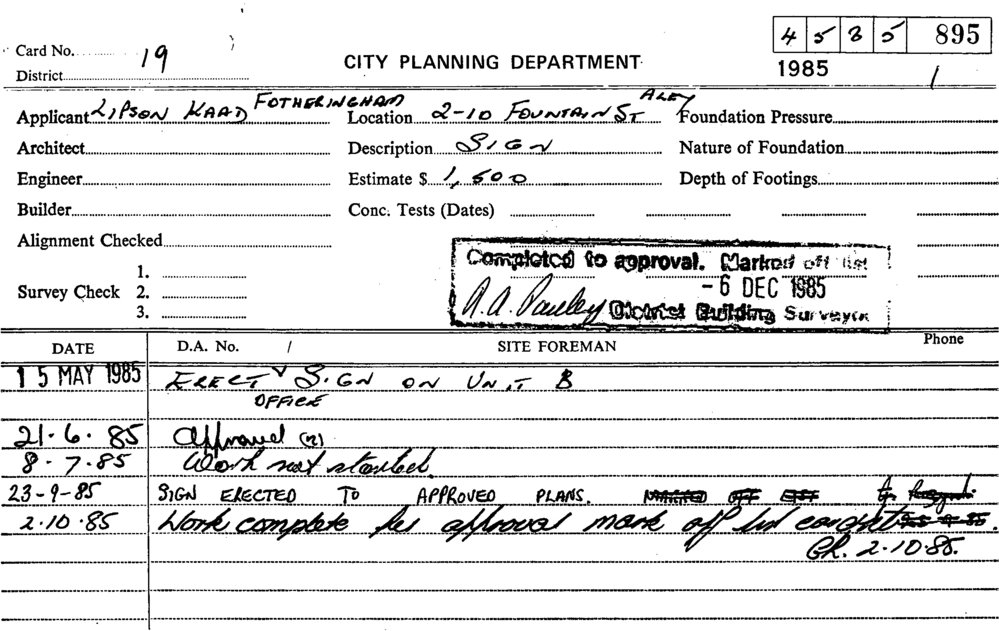 4 5 3 5 895
Card No. 19
District
CITY PLANNING DEPARTMENT
1985 1
Applicant LIPSON KAAD FOTHERINGHAM
Location 2-10 FOUNTAIN ST ALEX
Foundation Pressure
Architect
Description SIGN
Nature of Foundation
Engineer
Estimate $ 1,500
Depth of Footings
Builder
Conc. Tests (Dates)
Alignment Checked
Survey Check
1.
2.
3.
Completed to approval. Marked off list
- 6 DEC 1985
District Building Surveyor
DATE D.A. No. / SITE FOREMAN Phone
15 MAY 1985 ERECT OFFICE SIGN ON UNIT B
21.6.85 Approved (2)
8.7.85 Work not started.
23-9-85 SIGN ERECTED TO APPROVED PLANS.
2.10.85 Work complete for approval mark off list
2.10.85.